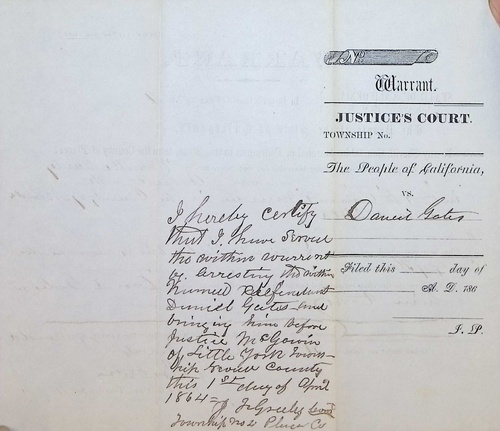 Warrant.
JUSTICE'S COURT.
TOWNSHIP No.
The People of California,
vs.
Daniel Gates
Filed this day of
A. D. 186
J. P.
I hereby certify
that I have served
the within warrant
by arresting the within
named defendant
Daniel Gates and
bringing him before
Justice McGowin
of Little York Town-
ship County
this 1st day of April
1864 J Greely
Township no 2 Placer Co